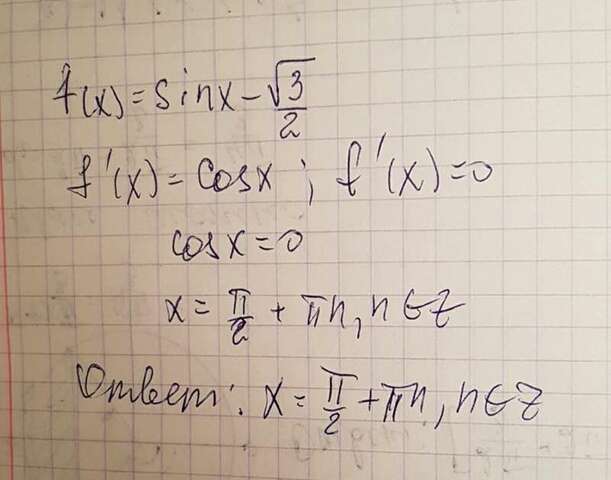 f(x) = sinx - √3/2
f'(x) = cosx ; f'(x) = 0
cosx = 0
x = π/2 + πn, n ∈ Z
Ответ: x = π/2 + πn, n ∈ Z